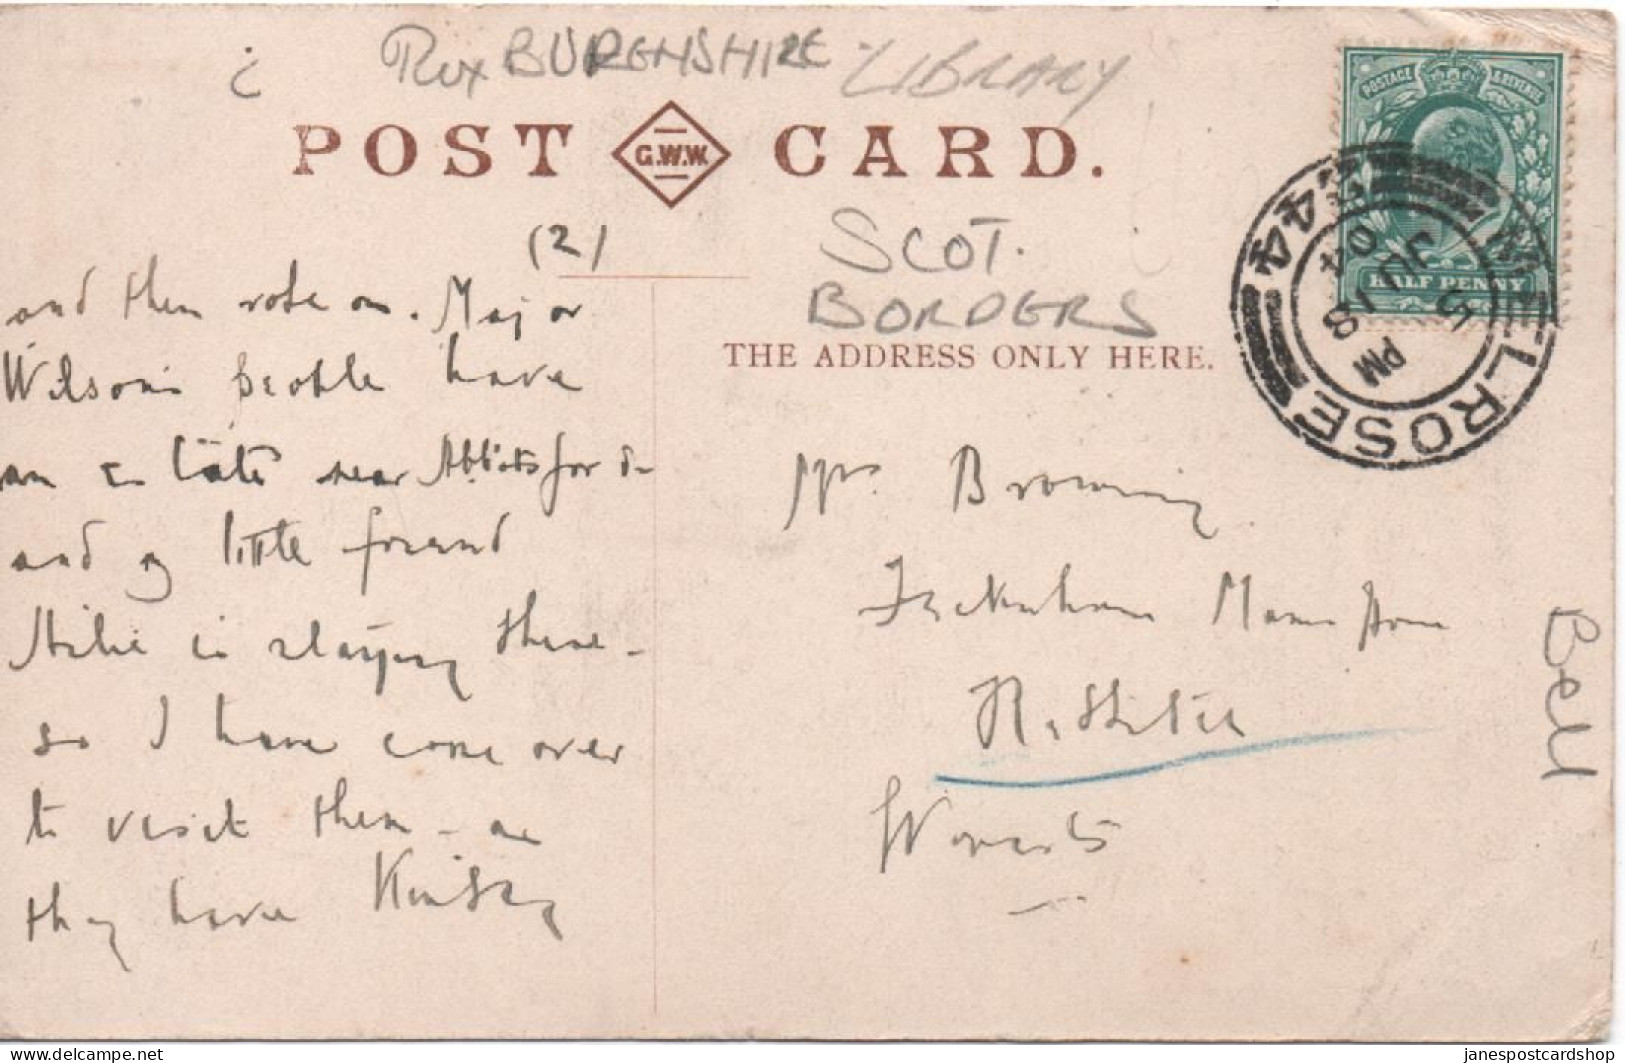 Rox BURGHSHIRE - LIBRARY
POST G.W.W. CARD.
POSTAGE & REVENUE
HALF PENNY
MELROSE
44
5 PM
JU 18
04
SCOT.
BORDERS
THE ADDRESS ONLY HERE.
(2)
and then rode on. Major
Wilson's people have
an estate near Abbotsford -
and my little friend
is staying there -
so I have come over
to visit them - as
they have kindly
Mrs. Browning
Feckenham Manor House
Redditch
Worcs
Bell
janespostcardshop
www.delcampe.net